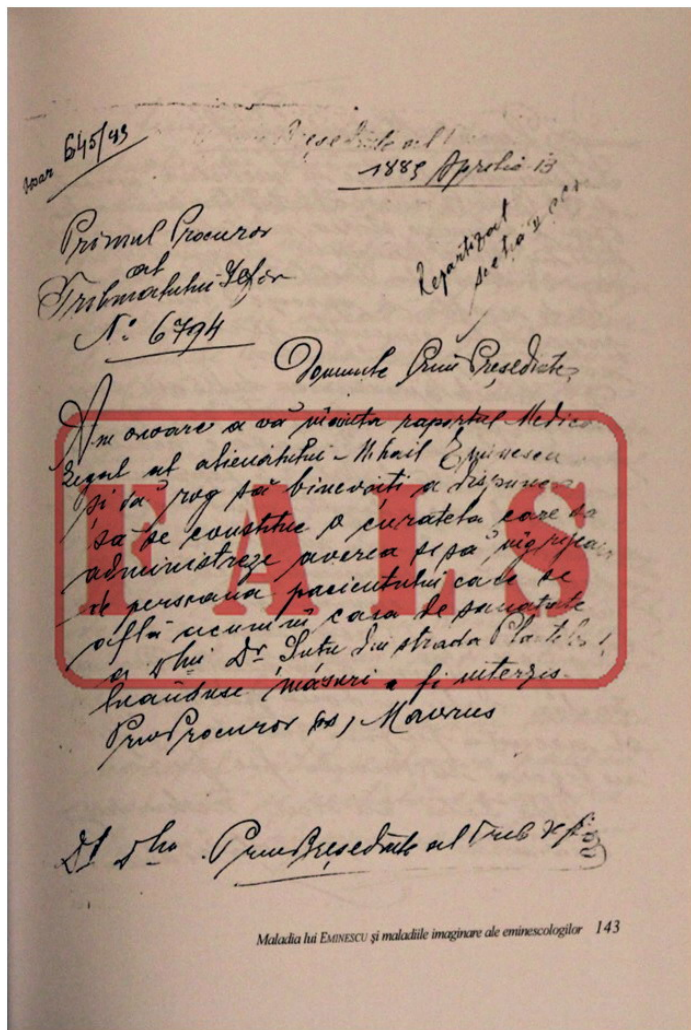 Dosar 645/93
Președinte al
1889 Aprilie 13
Primul Procuror
al
Tribunalului Ilfov
Repartizat
secția
No: 6794
Domnule Prim Președinte,
Am onoare a vă înainta raportul Medico
Legal al alienatului Mihail Eminescu
și vă rog să binevoiți a dispune
să se constitue o curatela care să
administreze averea și să îngrijească
de persoana pacientului care se
află acum în casa de sanatate
a Dlui Dr Șutu din strada Plantelor
măsuri a fi interzis.
Prim Procuror (ss) Mavrus
FALS
Dl Dlui Prim Președinte al Trib Ilfov
Maladia lui EMINESCU și maladiile imaginare ale eminescologilor 143